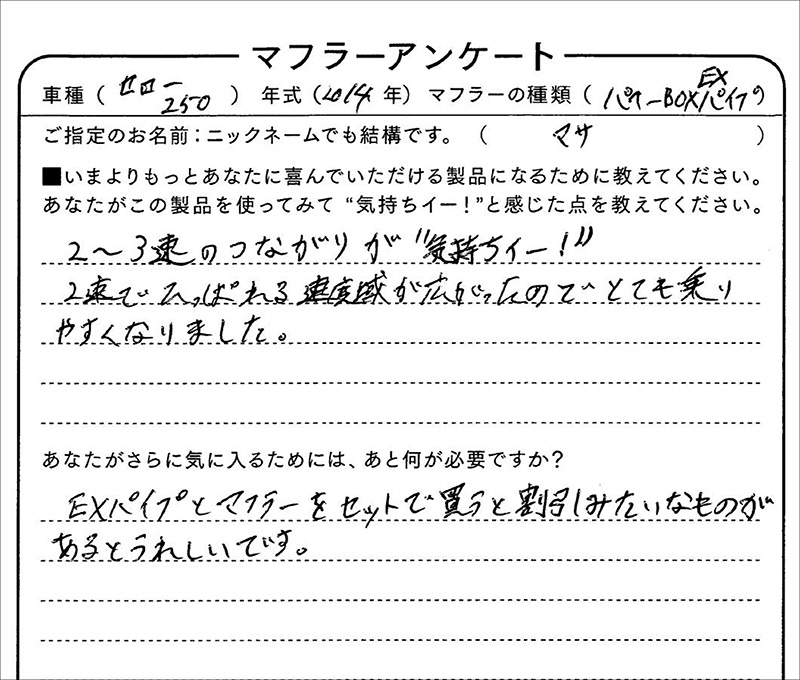 マフラーアンケート
車種（ セロー250 ） 年式（2014年） マフラーの種類（ パワーBOX EXパイプ ）
ご指定のお名前：ニックネームでも結構です。（ マサ ）
■いまよりもっとあなたに喜んでいただける製品になるために教えてください。
あなたがこの製品を使ってみて “気持ちイー！”と感じた点を教えてください。
2〜3速のつながりが“気持ちイー！”
2速でひっぱれる速度域が広がったのでとても乗り
やすくなりました。
あなたがさらに気に入るためには、あと何が必要ですか？
EXパイプとマフラーをセットで買うと割引みたいなものが
あるとうれしいです。